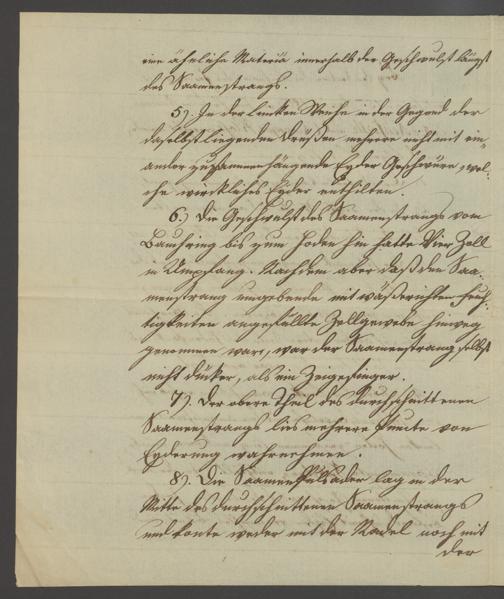 eine ähnliche Materia innerhalb der Geschwulst längst
des Saamenstrangs.
5). In der linken Weiche in der Gegend der
daselbst liegenden Drüßen mehrere nicht mit ein=
ander zusammenhängende Eyder Geschwüre, wel=
che wirckliches Eyder enthilten.
6.) Die Geschwulst des Saamenstrangs vom
Bauchring bis zum Hoden hin hatte Vier Zoll
in Umpfang. Nachdem aber daß den Saa=
menstrang umgebende mit wäßerichten Feuch=
tigkeiten angefüllte Zellgewebe hinweg
genommen ware, war der Saamenstrang selbst
nicht dicker, als ein Zeigefinger.
7). Der obere Theil des durchschnittenen
Saamenstrangs lies mehrere Puncte von
Eyderung wahrnehmen.
8). Die Saamen Pulsader lag in der
Mitte des durchschnittenen Saamenstrangs
und konte weder mit der Nadel noch mit
der